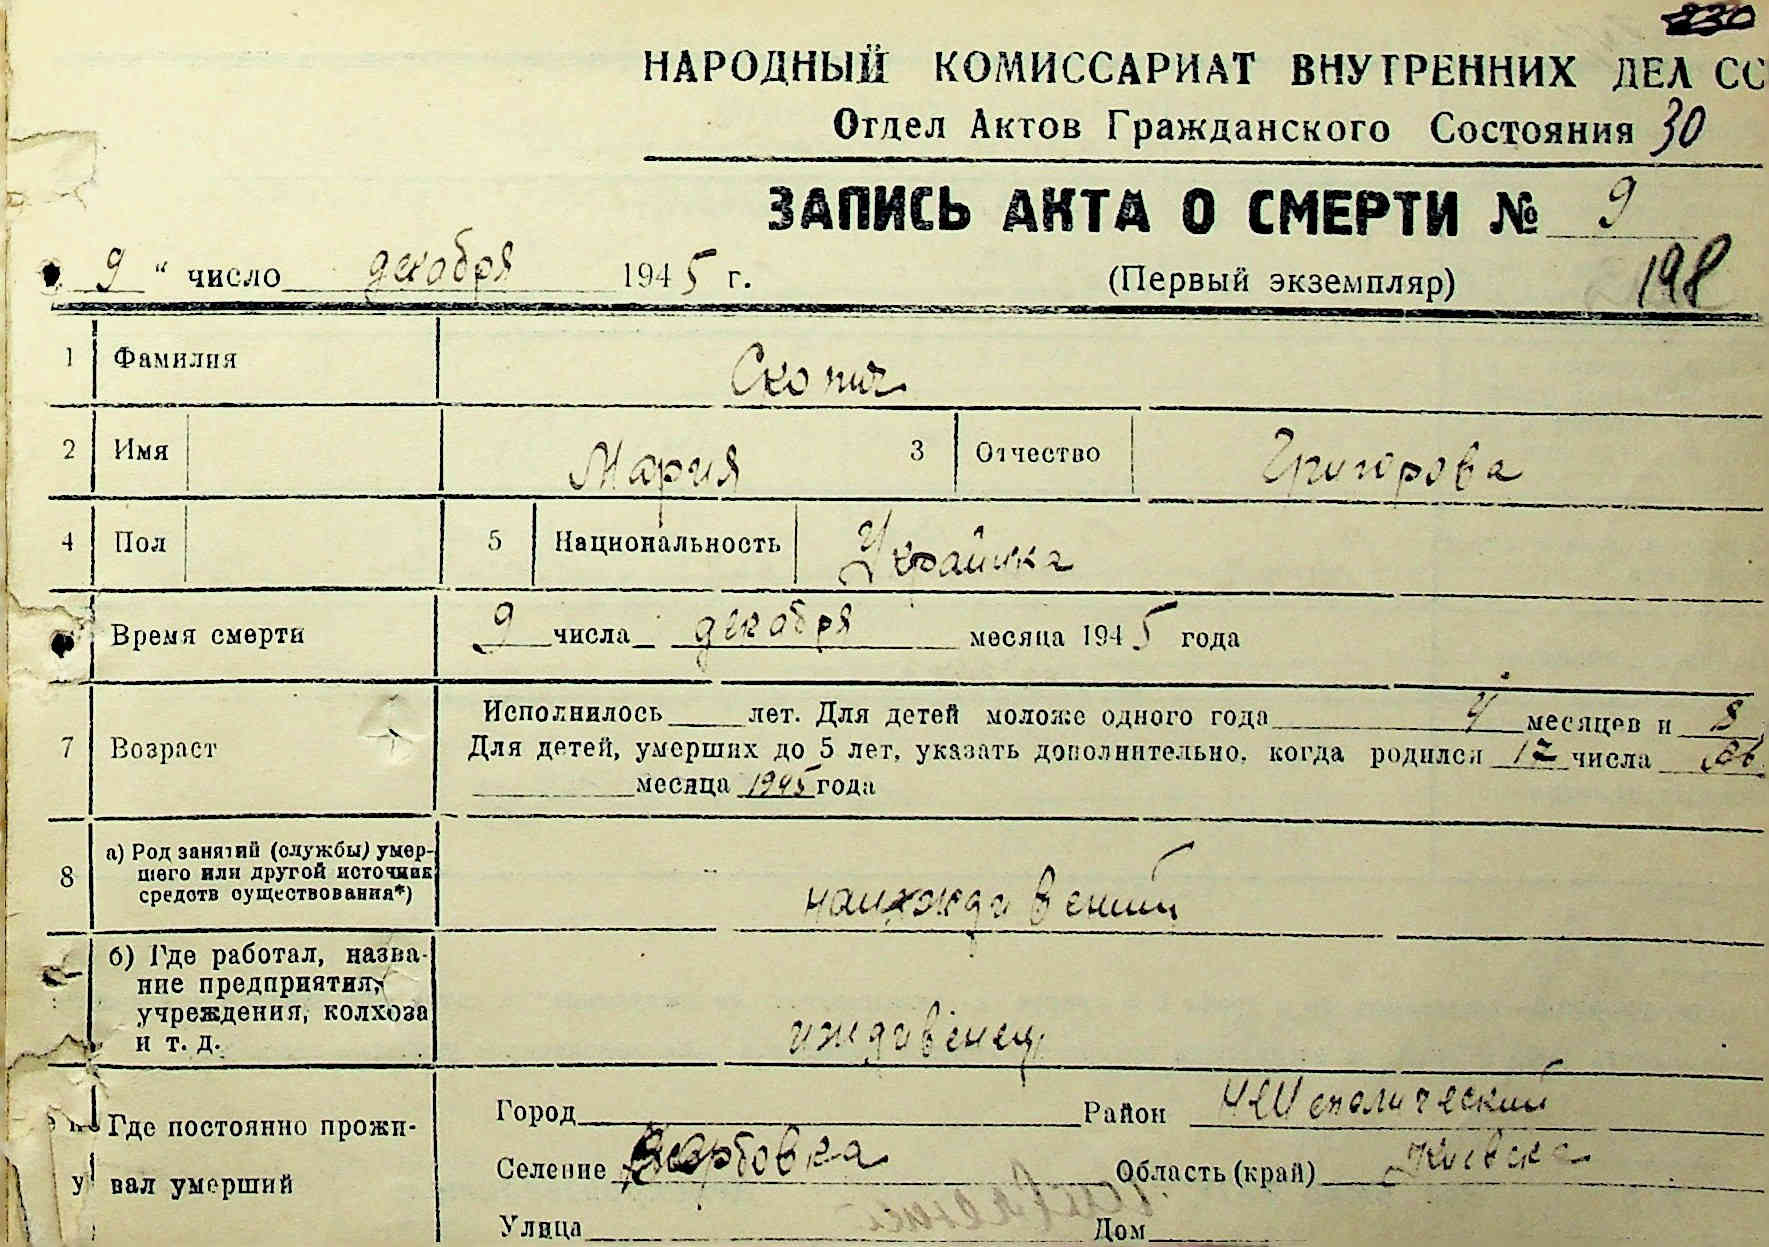 230
НАРОДНЫЙ КОМИССАРИАТ ВНУТРЕННИХ ДЕЛ СС
Отдел Актов Гражданского Состояния 30
ЗАПИСЬ АКТА О СМЕРТИ № 9
9 " число декабря 1945 г. (Первый экземпляр) 198
1 Фамилия
2 Имя Мария 3 Отчество Григорова
4 Пол 5 Национальность Украинка
Время смерти 9 числа декабря месяца 1945 года
7 Возраст Исполнилось лет. Для детей моложе одного года 4 месяцев и 8
Для детей, умерших до 5 лет, указать дополнительно, когда родился 17 числа
месяца 1945 года
8 а) Род занятий (службы) умер-
шего или другой источник
средств существования*)
б) Где работал, назва-
ние предприятия,
учреждения, колхоза
и т. д. иждивенец
Где постоянно прожи-
вал умерший
Город Район
Селение Область (край)
Улица Дом